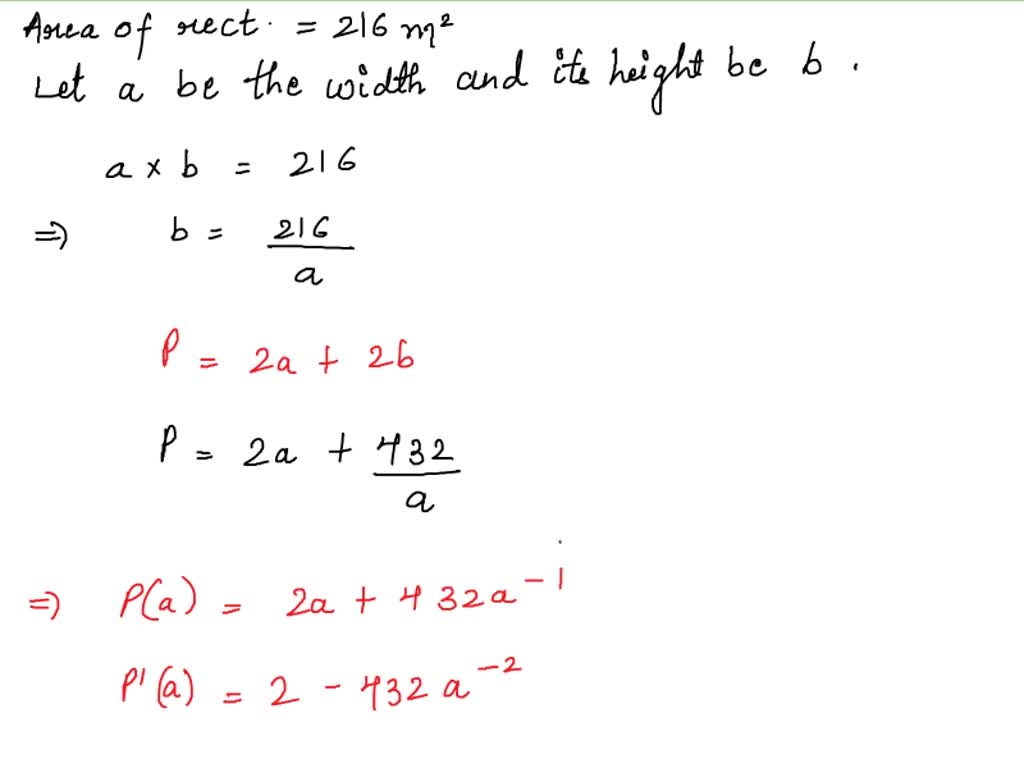 Area of rect. = 216 m²
Let a be the width and its height be b.
a × b = 216
⇒ b = 216/a
P = 2a + 2b
P = 2a + 432/a
⇒ P(a) = 2a + 432a⁻¹
P'(a) = 2 - 432a⁻²